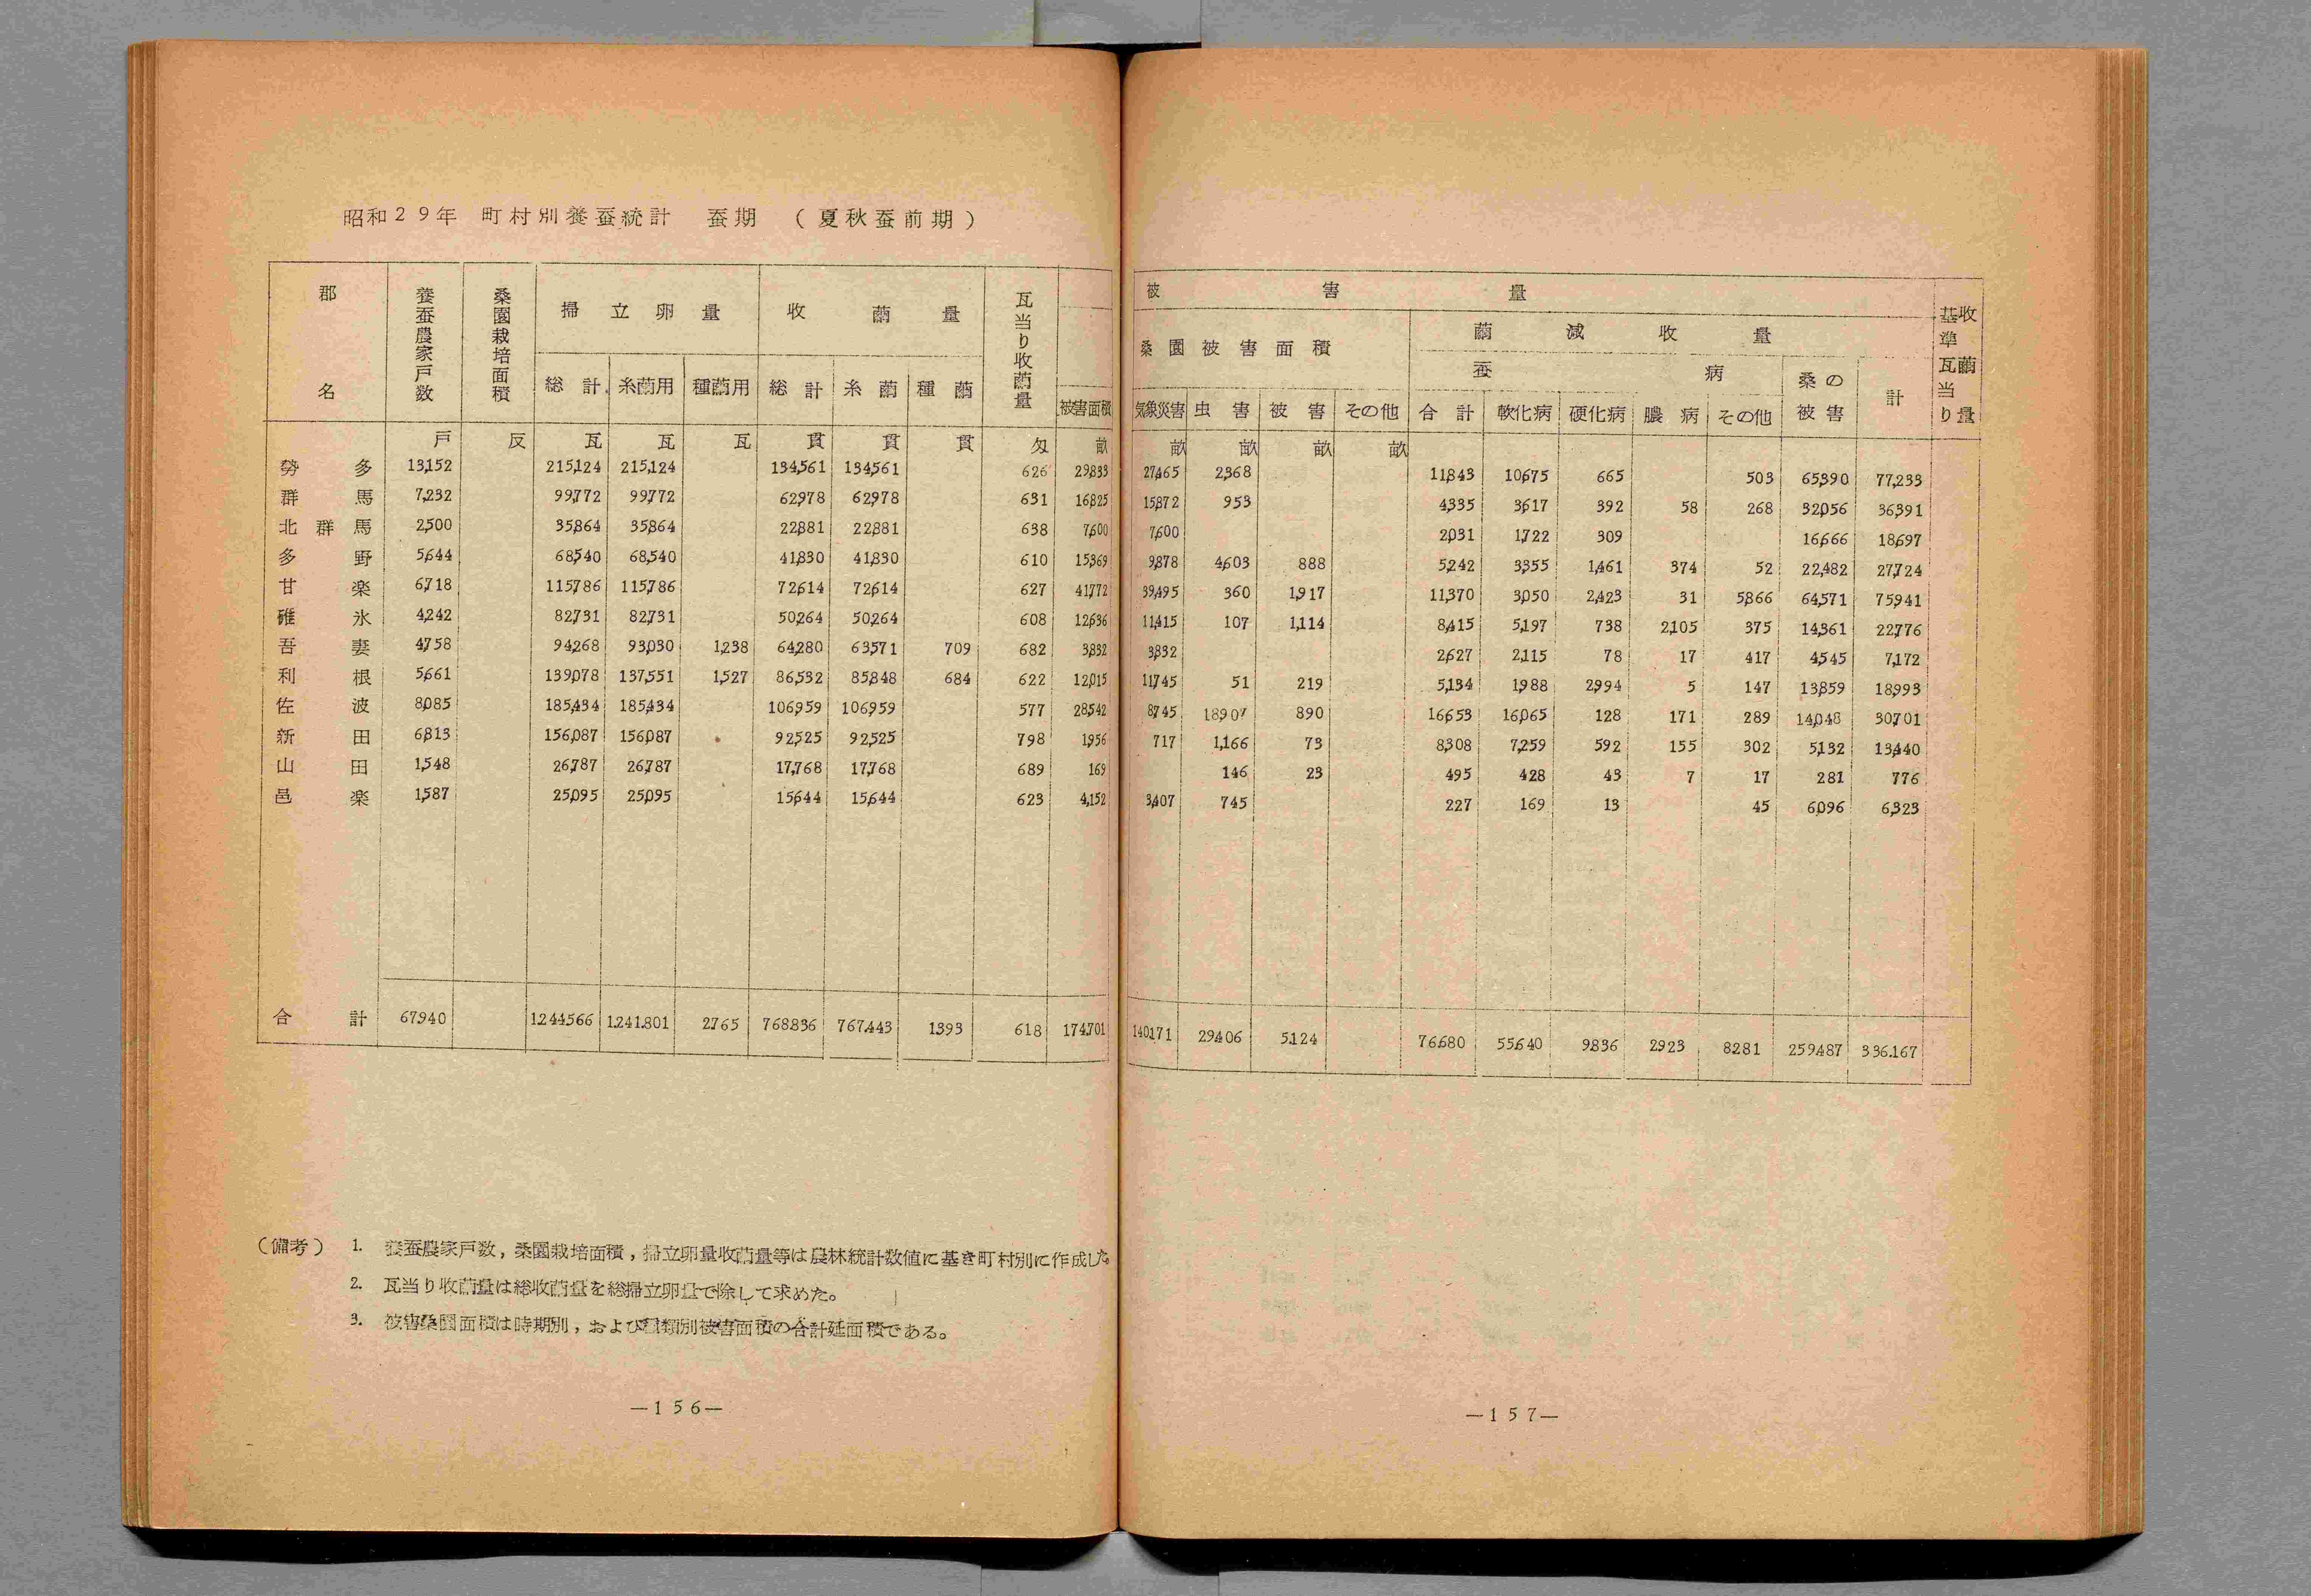 昭和29年 町村別養蚕統計 蚕期 (夏秋蚕前期)
郡名 養蚕農家戸数 桑園栽培面積 掃立卵量 收繭量 瓦当り收繭量
総計 糸繭用 種繭用 総計 糸繭 種繭 被害面積
戸 反 瓦 瓦 瓦 貫 貫 貫 匁 畝
勢多 13,152 215,124 215,124 134,561 134,561 626 29,833
群馬 7,232 99,772 99,772 62,978 62,978 631 16,825
北群馬 2,500 35,864 35,864 22,881 22,881 638 7,600
多野 5,644 68,540 68,540 41,830 41,830 610 15,369
甘楽 6,718 115,786 115,786 72,614 72,614 627 41,772
碓氷 4,242 82,731 82,731 50,264 50,264 608 12,636
吾妻 4,758 94,268 93,030 1,238 64,280 63,571 709 682 3,832
利根 5,661 139,078 137,551 1,527 86,532 85,848 684 622 12,015
佐波 8,085 185,434 185,434 106,959 106,959 577 28,542
新田 6,813 156,087 156,087 92,525 92,525 798 1,956
山田 1,548 26,787 26,787 17,768 17,768 689 169
邑楽 1,587 25,095 25,095 15,644 15,644 623 4,152
合計 67,940 1,244,566 1,241,801 2,765 768,836 767,443 1,393 618 174,701
(備考) 1. 養蚕農家戸数,桑園栽培面積,掃立卵量收繭量等は農林統計数値に基き町村別に作成した
2. 瓦当り收繭量は総收繭量を総掃立卵量で除して求めた。
3. 被害桑園面積は時期別,および種類別被害面積の合計延面積である。
—156—
被害量
桑園被害面積 繭減收量 基準瓦当り收繭量
蚕病 桑の被害 計
気象災害 虫害 被害 その他 合計 軟化病 硬化病 膿病 その他
畝 畝 畝 畝
27,465 2,368 11,843 10,675 665 503 65,390 77,233
15,872 953 4,335 3,617 392 58 268 32,056 36,391
7,600 2,031 1,722 309 16,666 18,697
9,878 4,603 888 5,242 3,355 1,461 374 52 22,482 27,724
39,495 360 1,917 11,370 3,050 2,423 31 5,866 64,571 75,941
11,415 107 1,114 8,415 5,197 738 2,105 375 14,361 22,776
3,832 2,627 2,115 78 17 417 4,545 7,172
11,745 51 219 5,134 1,988 2,994 5 147 13,859 18,993
8,745 18,907 890 16,653 16,065 128 171 289 14,048 30,701
717 1,166 73 8,308 7,259 592 155 302 5,132 13,440
146 23 495 428 43 7 17 281 776
3,407 745 227 169 13 45 6,096 6,323
140,171 29,406 5,124 76,680 55,640 9,836 2,923 8,281 259,487 336,167
—157—